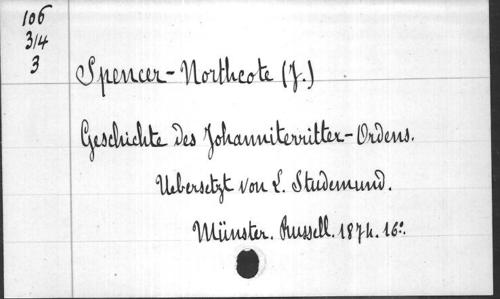 106
3/4
3
Spencer-Northcote (J.)
Geschichte des Johanniterritter-Ordens.
Uebersetzt von L. Studemund.
Münster. Russell. 1874. 16º.